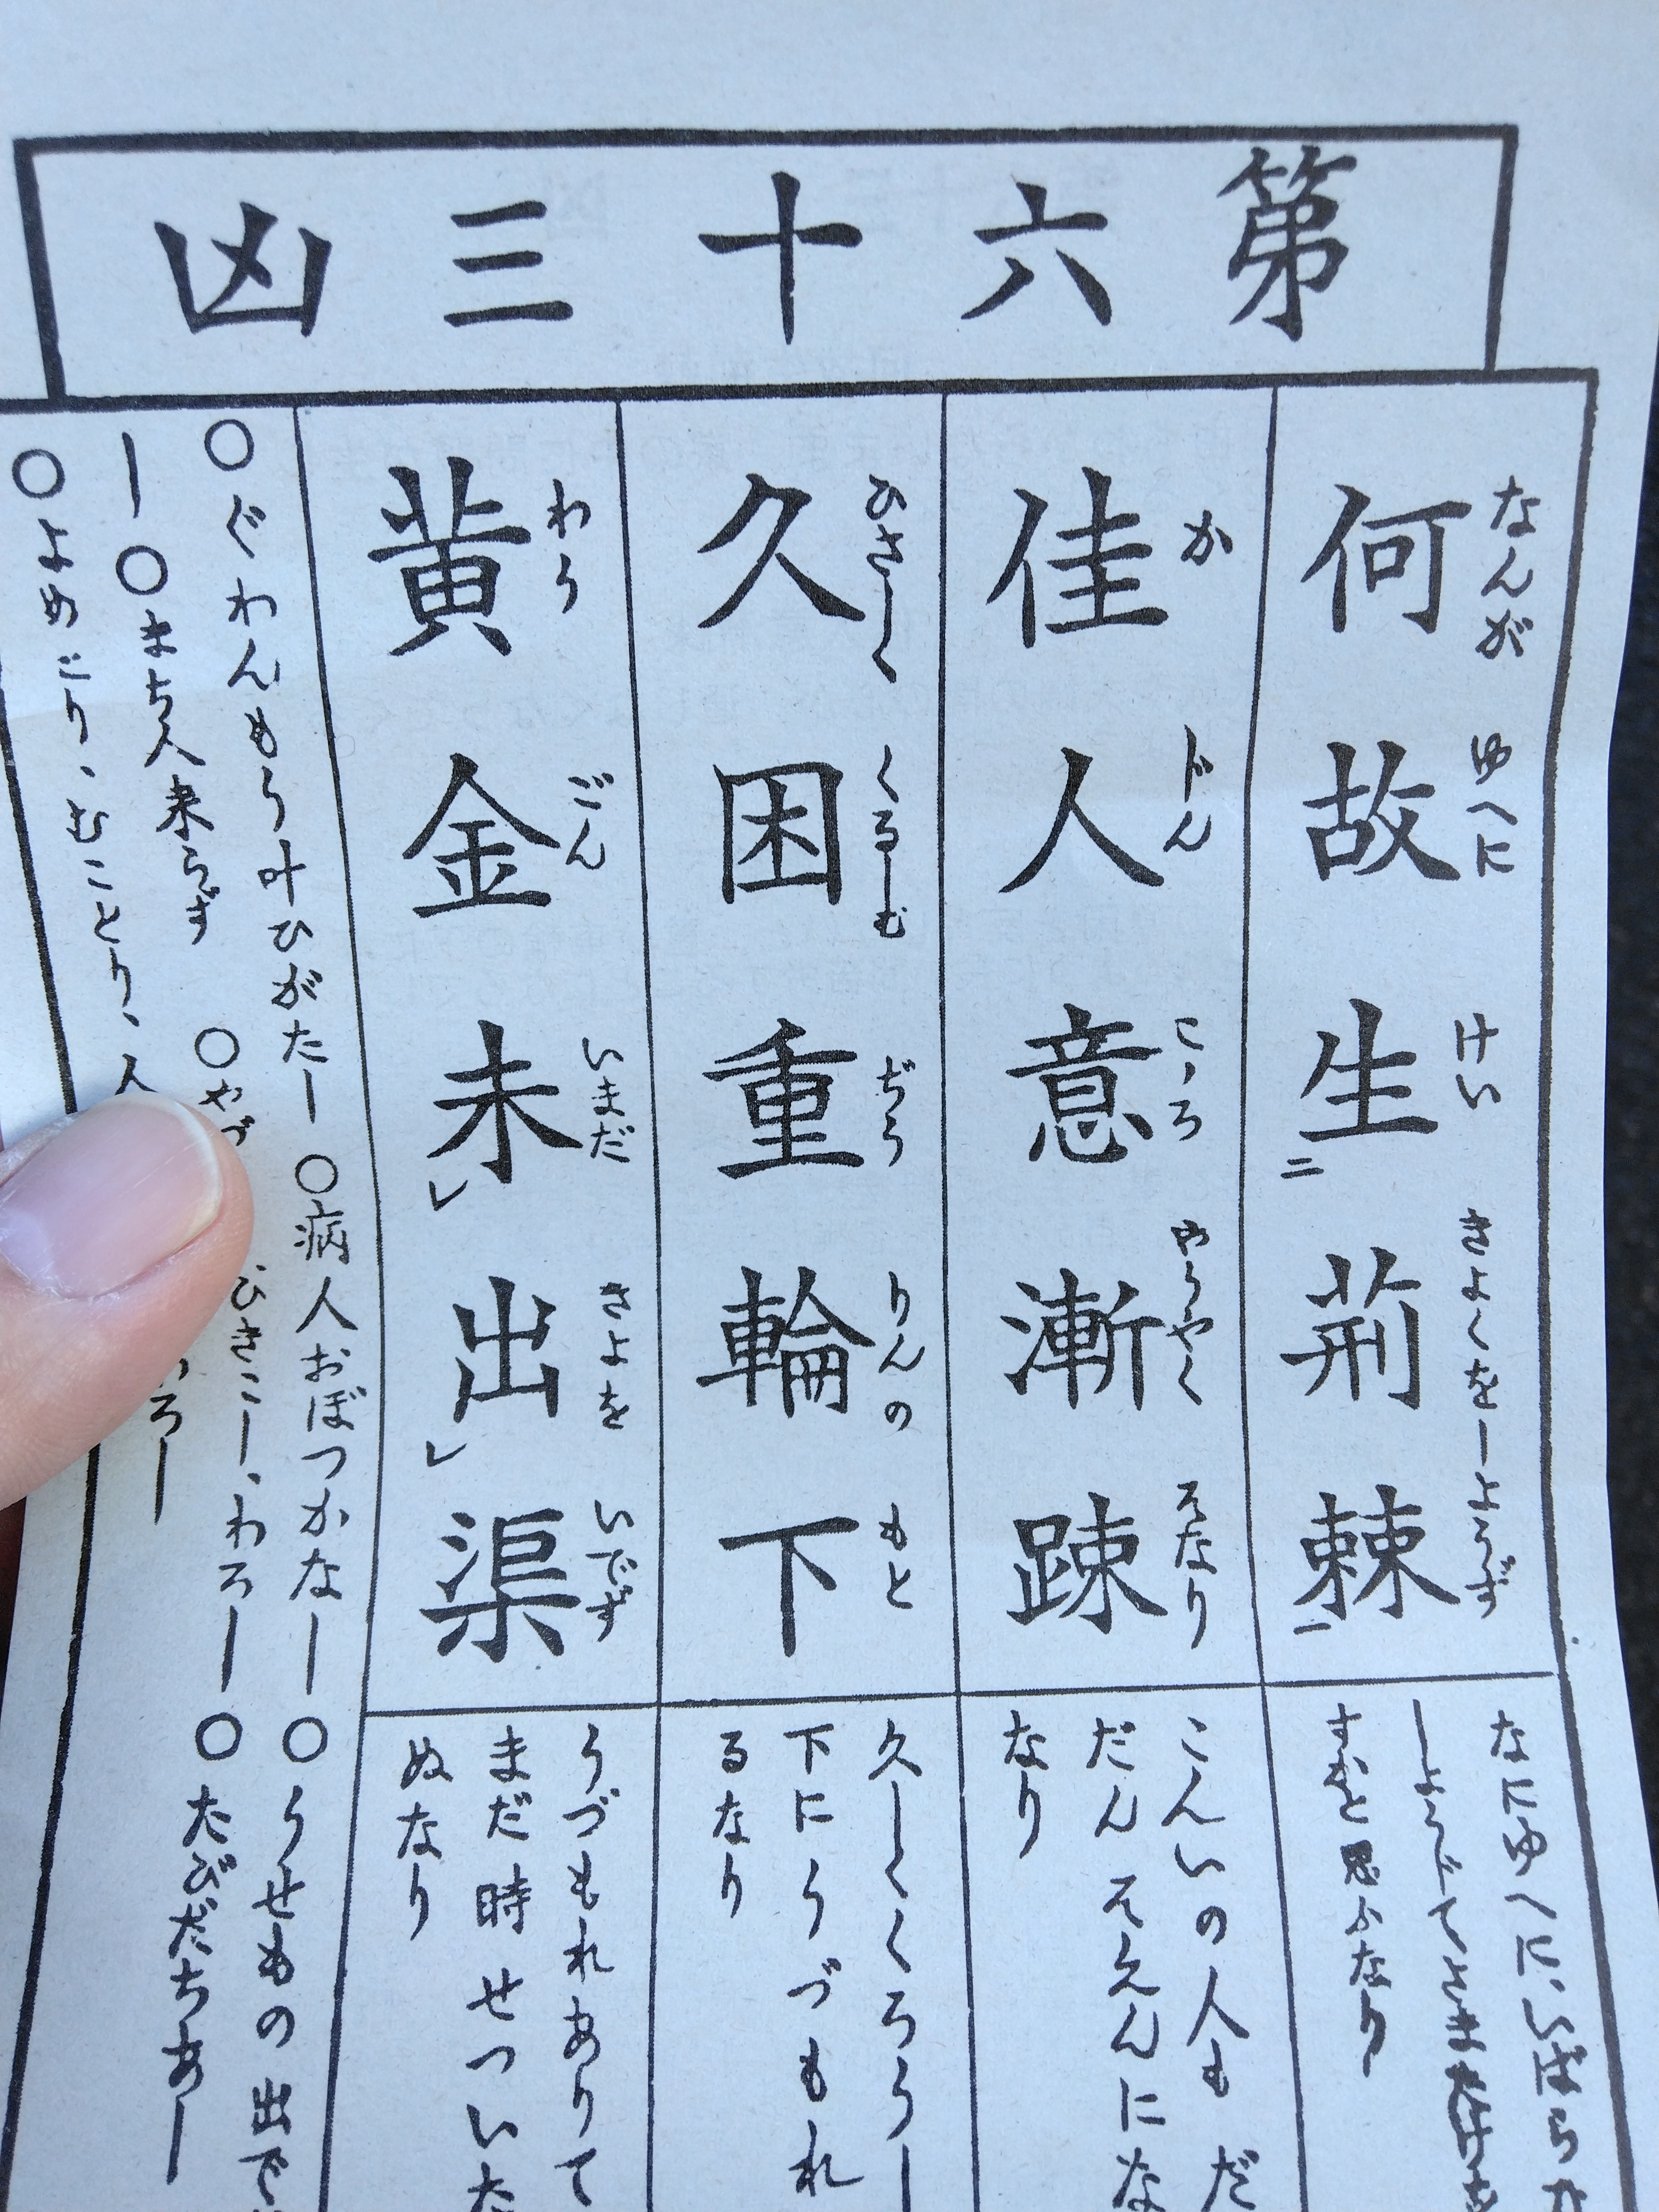 第六十三凶
何故生荊棘
なんが ゆへに けい きよくをしようず
佳人意漸踈
か じん こゝろ やうやく そなり
久困重輪下
ひさしく くるしむ ぢう りんの もと
黄金未出渠
わう ごん いまだ きよを いでず
なにゆへに、いばら
しようじて
すかと思ふなり
こんいの人も だ
だん そえんにな
なり
久しくくろうし
下にうづもれ
るなり
うづもれありて
まだ時せついた
ぬなり
○ぐわんもう叶ひがたし ○病人おぼつかなし ○うせもの出で
し ○まち人来らず ○やづ ひきこし、わろし ○たびだちあし
○よめどり、むことり、人 ろし